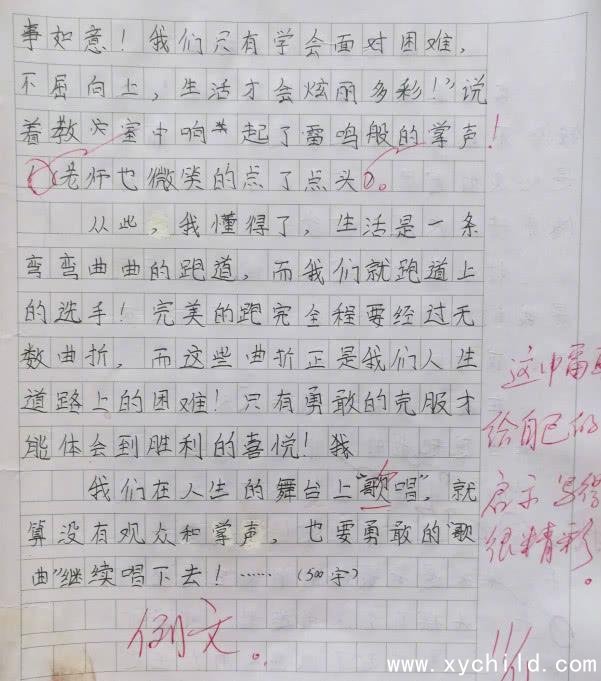 事如意！我们只有学会面对困难，
不屈向上，生活才会炫丽多彩！”说
着教室中响起了雷鸣般的掌声！
（老师也微笑的点了点头）。
从此，我懂得了，生活是一条
弯弯曲曲的跑道，而我们就跑道上
的选手！完美的跑完全程要经过无
数曲折，而这些曲折正是我们人生
道路上的困难！只有勇敢的克服才
能体会到胜利的喜悦！我
我们在人生的舞台上“歌唱”，就
算没有观众和掌声，也要勇敢的“歌
曲”继续唱下去！……（500字）
这中
给自己的
启示写得
很精彩。
例文。
11/1
www.xychild.com